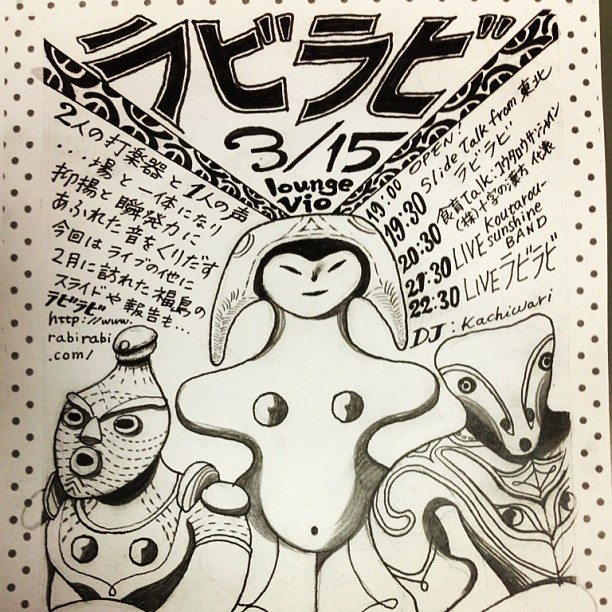 ラビラビ
3/15
lounge
Vio
2人の打楽器と1人の声
...場と一体になり
抑揚と瞬発力に
あふれた音をくりだす
今回はライブの他に
2月に訪れた福島の
スライドや報告も...
ラビラビ
http://www.
rabirabi
.com/
19:00 OPEN!
19:30 Slide Talk from 東北
ラビラビ
20:30 食育Talk:コウタロウサンシャイン
(株)十字の漢方 代表
21:30 LIVE Koutarou-
sunshine
BAND
22:30 LIVE ラビラビ
DJ: Kachiwari